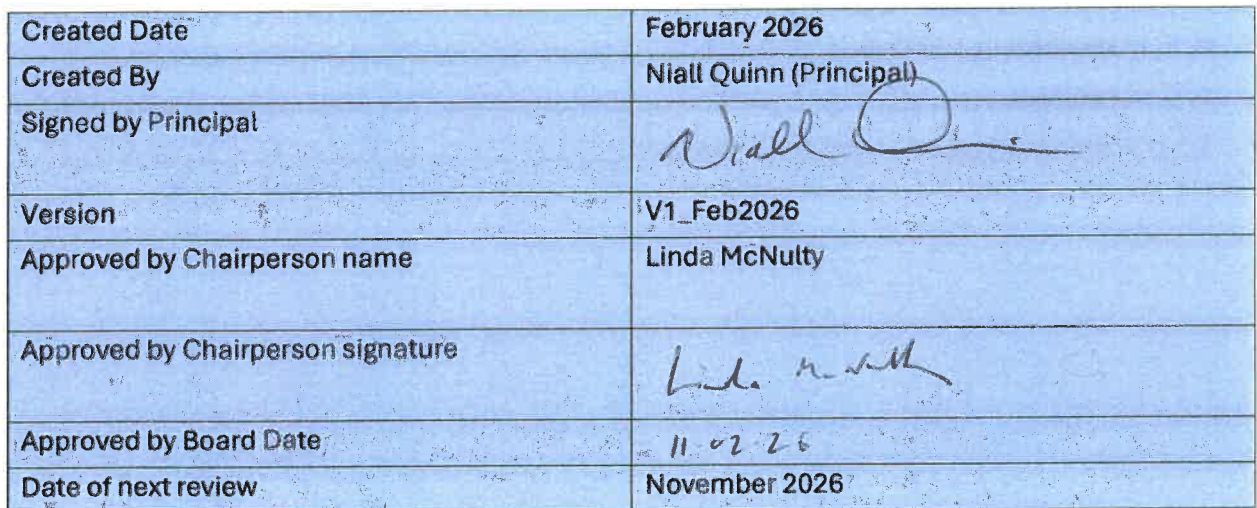 Created Date February 2026
Created By Niall Quinn (Principal)
Signed by Principal Niall Quinn
Version V1_Feb2026
Approved by Chairperson name Linda McNulty
Approved by Chairperson signature Linda McNulty
Approved by Board Date 11.02.26
Date of next review November 2026